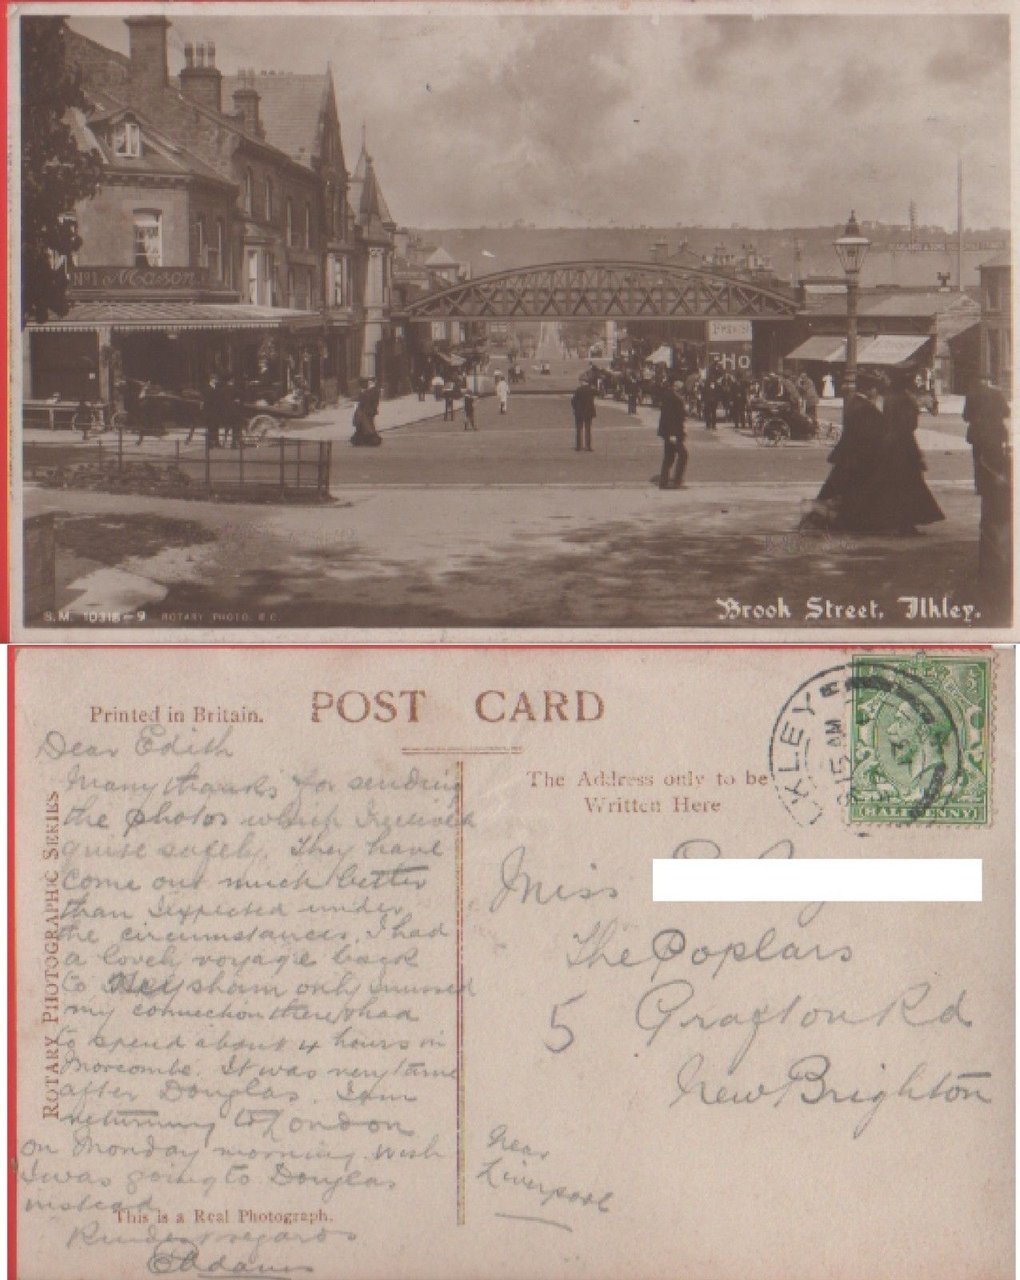 Nº1 Mason
THO
S.M. 10318-9 ROTARY PHOTO. E.C.
Brook Street, Ilkley.
POST CARD
Printed in Britain.
The Address only to be
Written Here
ROTARY PHOTOGRAPHIC SERIES
This is a Real Photograph.
ILKLEY
15 AM
HALFPENNY
Dear Edith
Many thanks for sending
the photos which I received
quite safely. They have
come out much better
than I expected under
the circumstances. I had
a lovely voyage back
to Heysham only missed
my connection there & had
to spend about 4 hours in
Morcombe. It was very tame
after Douglas. I am
returning to London
on Monday morning. wish
I was going to Douglas
instead
Kindest regards
Adams
Miss
The Poplars
5 Grafton Rd
New Brighton
Near
Liverpool